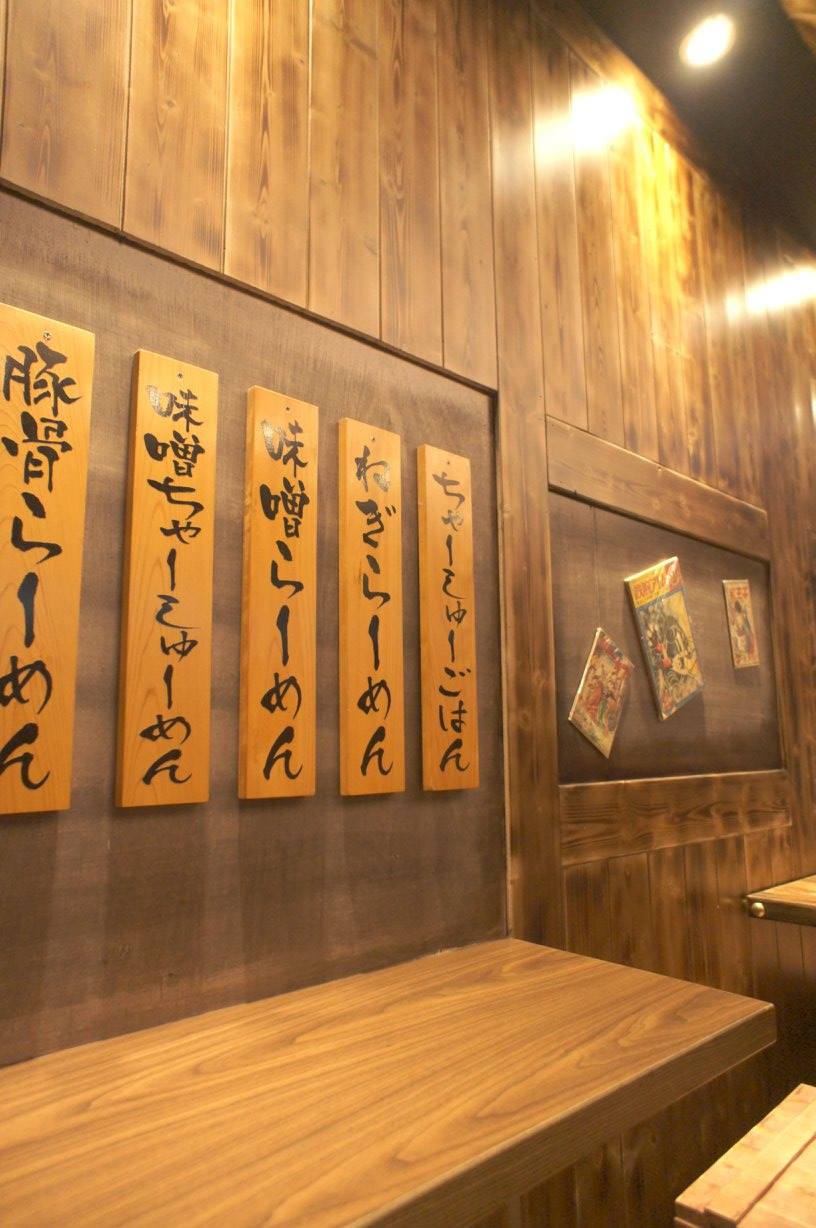 豚骨らーめん
味噌ちゃーしゅーめん
味噌らーめん
ねぎらーめん
ちゃーしゅーごはん